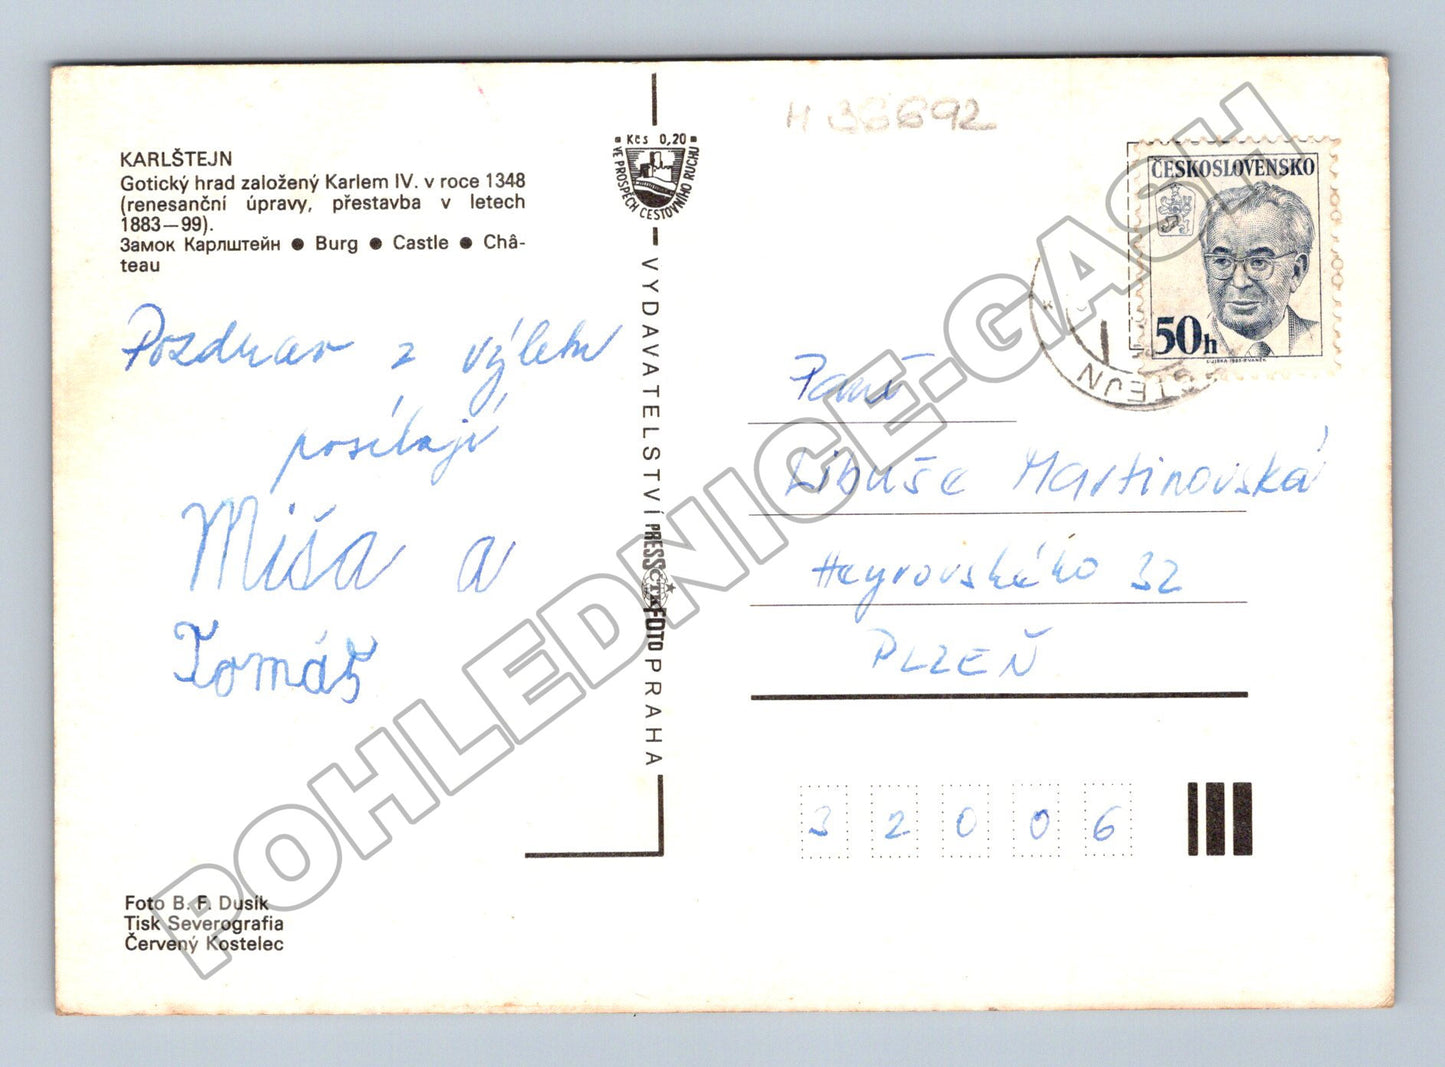 H 36692
KARLŠTEJN
Gotický hrad založený Karlem IV. v roce 1348
(renesanční úpravy, přestavba v letech
1883—99).
Замок Карлштейн ● Burg ● Castle ● Châ-
teau
Pozdrav z výletu
posílají
Míša a
Tomáš
Foto B. F. Dusík
Tisk Severografia
Červený Kostelec
Kčs 0,20
VE PROSPĚCH CESTOVNÍHO RUCHU
VYDAVATELSTVÍ PRESSFOTO PRAHA
ČTK
ČESKOSLOVENSKO
50h
ŠTEJN
Paní
Libuše Martinovská
Heyrovského 32
PLZEŇ
32006
POHLEDNICE-GASH